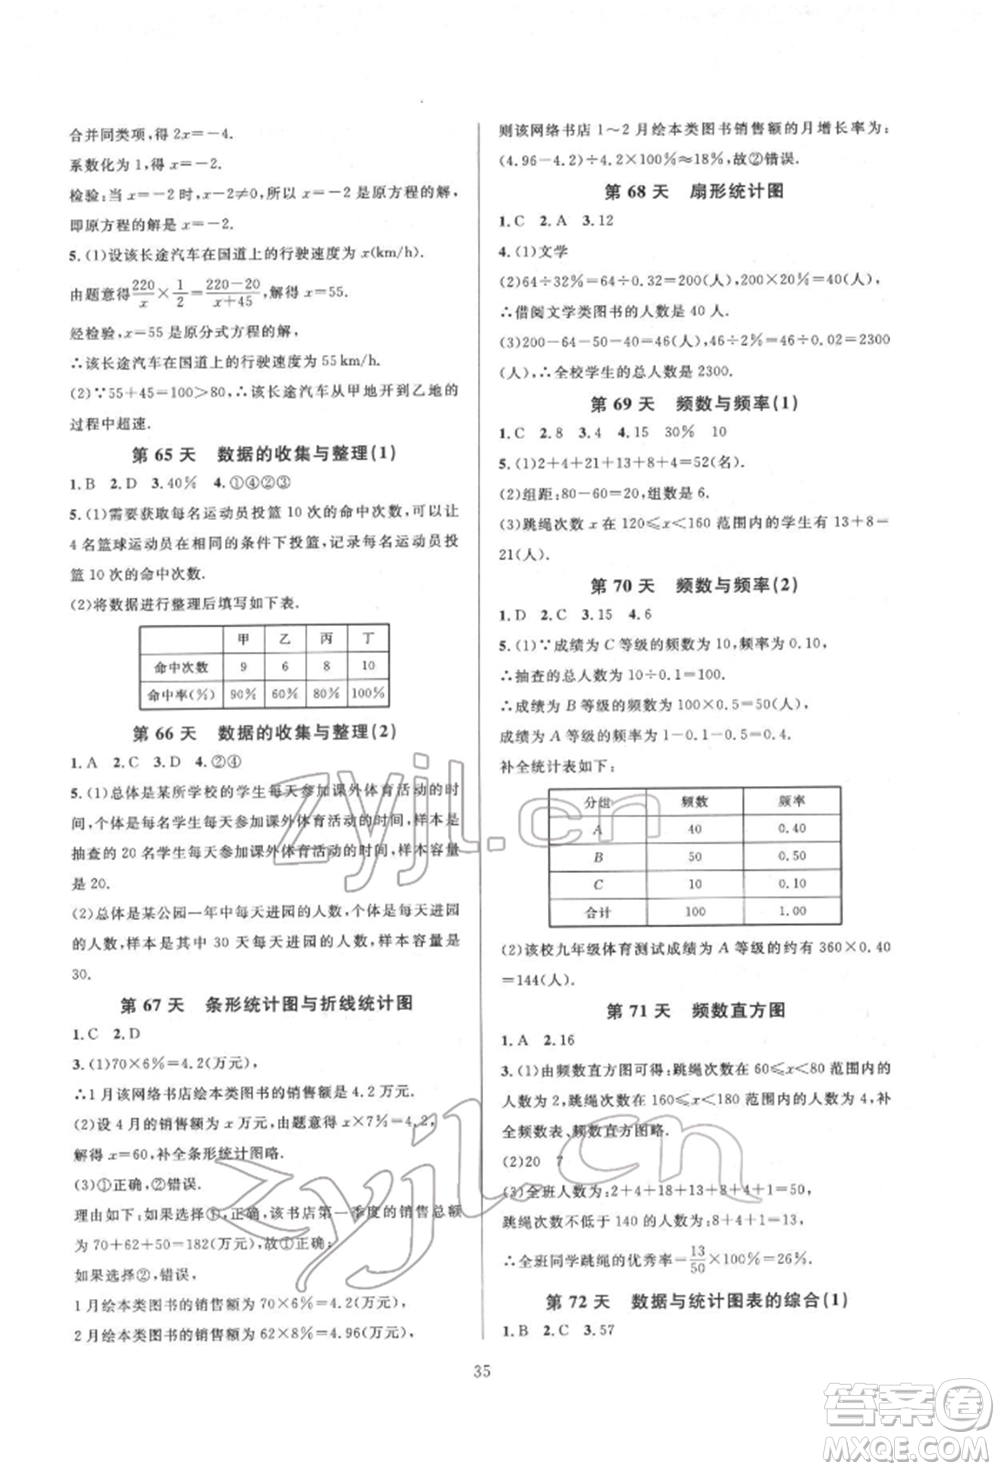 合并同类项,得 2x=-4.
系数化为1,得 x=-2.
检验:当 x=-2 时,x-2≠0,所以 x=-2 是原方程的解,
即原方程的解是 x=-2.
5.(1)设该长途汽车在国道上的行驶速度为 x(km/h).
由题意得220/x×1/2=(220-20)/(x+45),解得 x=55.
经检验,x=55 是原分式方程的解,
∴该长途汽车在国道上的行驶速度为 55 km/h.
(2)∵55+45=100>80,∴该长途汽车从甲地开到乙地的
过程中超速.
第 65 天 数据的收集与整理(1)
1.B 2.D 3.40% 4.①④②③
5.(1)需要获取每名运动员投篮 10 次的命中次数,可以让
4 名篮球运动员在相同的条件下投篮,记录每名运动员投
篮 10 次的命中次数.
(2)将数据进行整理后填写如下表.
甲 乙 丙 丁
命中次数 9 6 8 10
命中率(%) 90% 60% 80% 100%
第 66 天 数据的收集与整理(2)
1.A 2.C 3.D 4.②④
5.(1)总体是某所学校的学生每天参加课外体育活动的时
间,个体是每名学生每天参加课外体育活动的时间,样本是
抽查的 20 名学生每天参加课外体育活动的时间,样本容量
是 20.
(2)总体是某公园一年中每天进园的人数,个体是每天进园
的人数,样本是其中 30 天每天进园的人数,样本容量是
30.
第 67 天 条形统计图与折线统计图
1.C 2.D
3.(1)70×6%=4.2(万元),
∴1月该网络书店绘本类图书的销售额为 4.2 万元.
(2)设 4 月的销售额为 x 万元,x×7%=4.2,
解得 x=60,补全条形统计图略.
(3)①正确,②错误.
理由如下:如果选择①,正确,该书店第一季度的销售总额
为 70+62+50=182(万元),故①正确;
如果选择②,错误,
1月绘本类图书的销售额为 70×6%=4.2(万元),
2月绘本类图书的销售额为 62×8%=4.96(万元),
则该网络书店 1~2 月绘本类图书销售额的月增长率为:
(4.96-4.2)÷4.2×100%≈18%,故②错误.
第 68 天 扇形统计图
1.C 2.A 3.12
4.(1)文学
(2)64÷32%=64÷0.32=200(人),200×20%=40(人),
∴借阅文学类图书的人数是 40 人.
(3)200-64-50-40=46(人),46÷2%=46÷0.02=2300
(人),∴全校学生的总人数是 2300.
第 69 天 频数与频率(1)
1.C 2.8 3.4 4.15 30% 10
5.(1)2+4+21+13+8+4=52(名).
(2)组距:80-60=20,组数是 6.
(3)跳绳次数 x 在 120≤x<160 范围内的学生有 13+8=
21(人).
第 70 天 频数与频率(2)
1.D 2.C 3.15 4.6
5.(1)∵成绩为 C 等级的频数为 10,频率为 0.10,
∴抽查的总人数为 10÷0.1=100(人),
∴成绩为 B 等级的频数为 100×0.5=50(人),
成绩为 A 等级的频率为 1-0.1-0.5=0.4.
补全统计表如下:
分组 频数 频率
A 40 0.40
B 50 0.50
C 10 0.10
合计 100 1.00
(2)该校九年级体育测试成绩为 A 等级的约有 360×0.40
=144(人).
第 71 天 频数直方图
1.A 2.16
3.(1)由频数直方图可得:跳绳次数在 60≤x<80 范围的
人数为 2,跳绳次数在 160≤x<180 范围的人数为 4,补
全频数表、频数直方图略.
(2)20 7
(3)全班人数为:2+4+18+13+8+4+1=50,
跳绳次数不低于 140 的人数为:8+4+1=13,
∴全班同学跳绳的优秀率=13/50×100%=26%.
第 72 天 数据与统计图表的综合(1)
1.B 2.C 3.57
35
zyjl.cn
zyjl.cn
答案圈
MXQE.COM